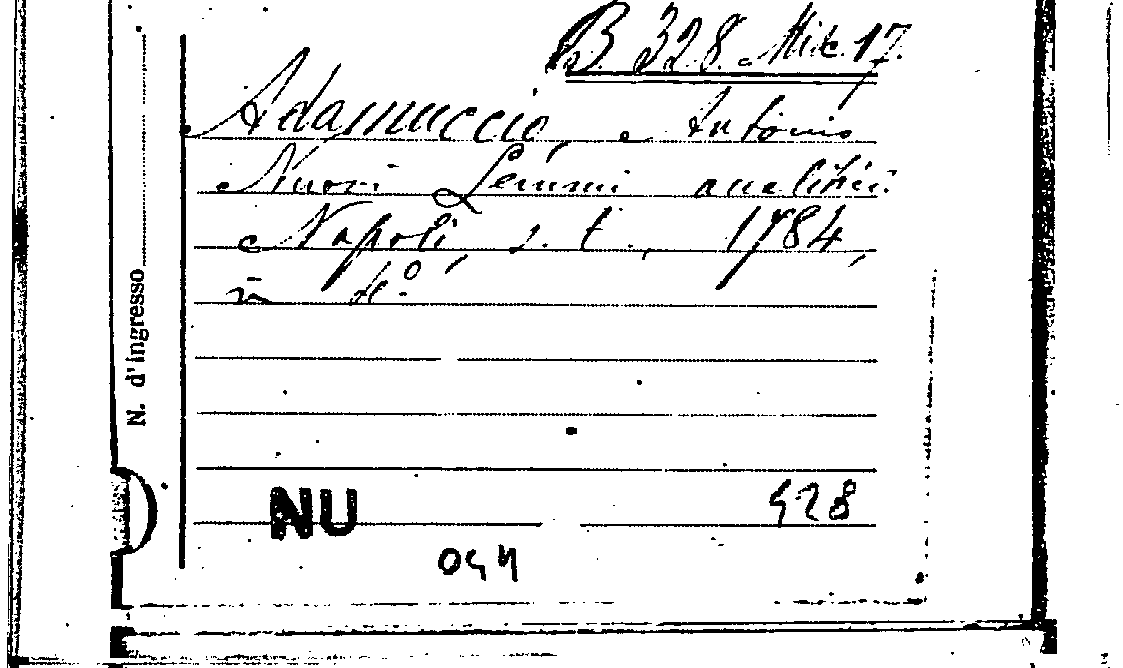 B 328 Misc. 17.
Adamuccio, Antonio
Nuovi Lemmi analitici.
Napoli, s. t., 1784,
in 4º.
N. d'ingresso
NU
428